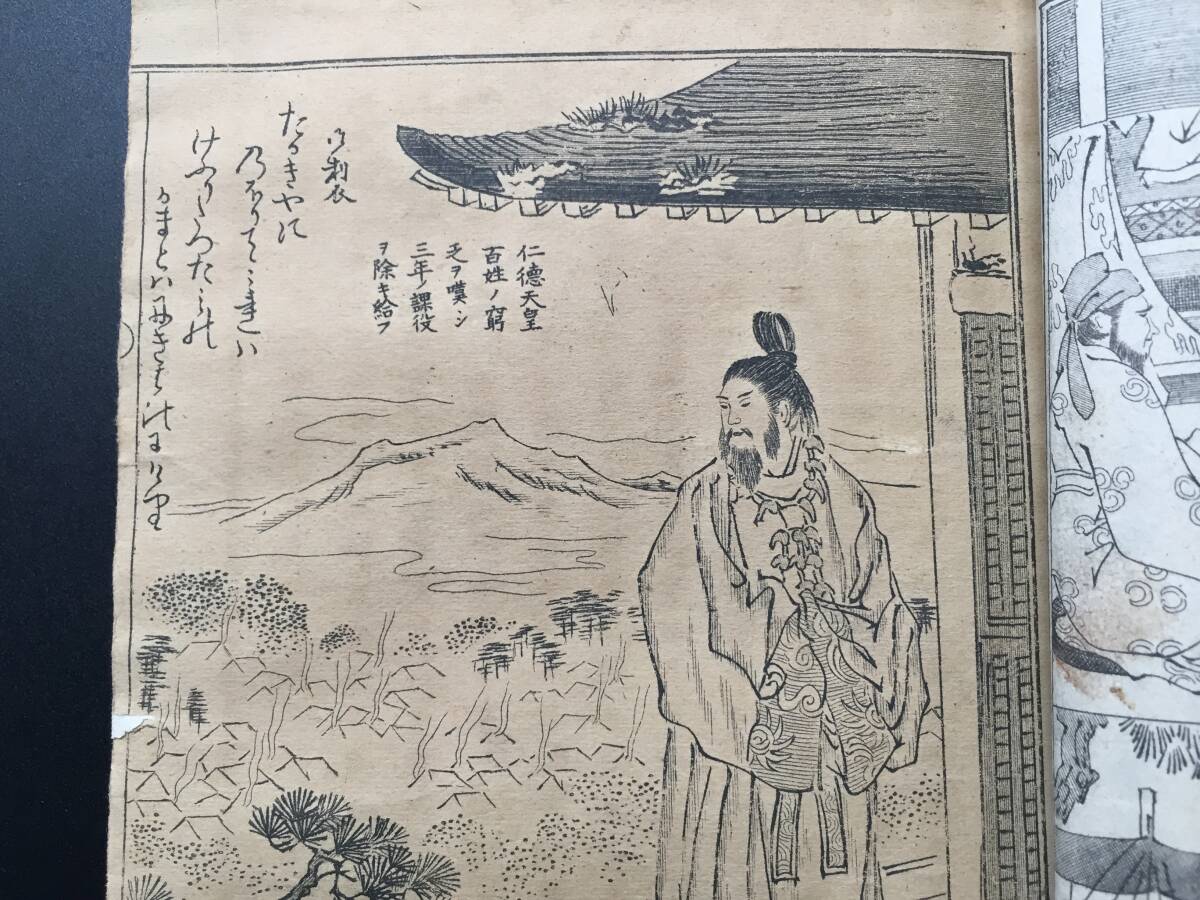 仁德天皇
百姓ノ窮
乏ヲ嘆シ
三年ノ課役
ヲ除キ給フ
御製
たかきやに
乃ほりてみれハ
けふりたつたみの
かまとハにきはひにけり